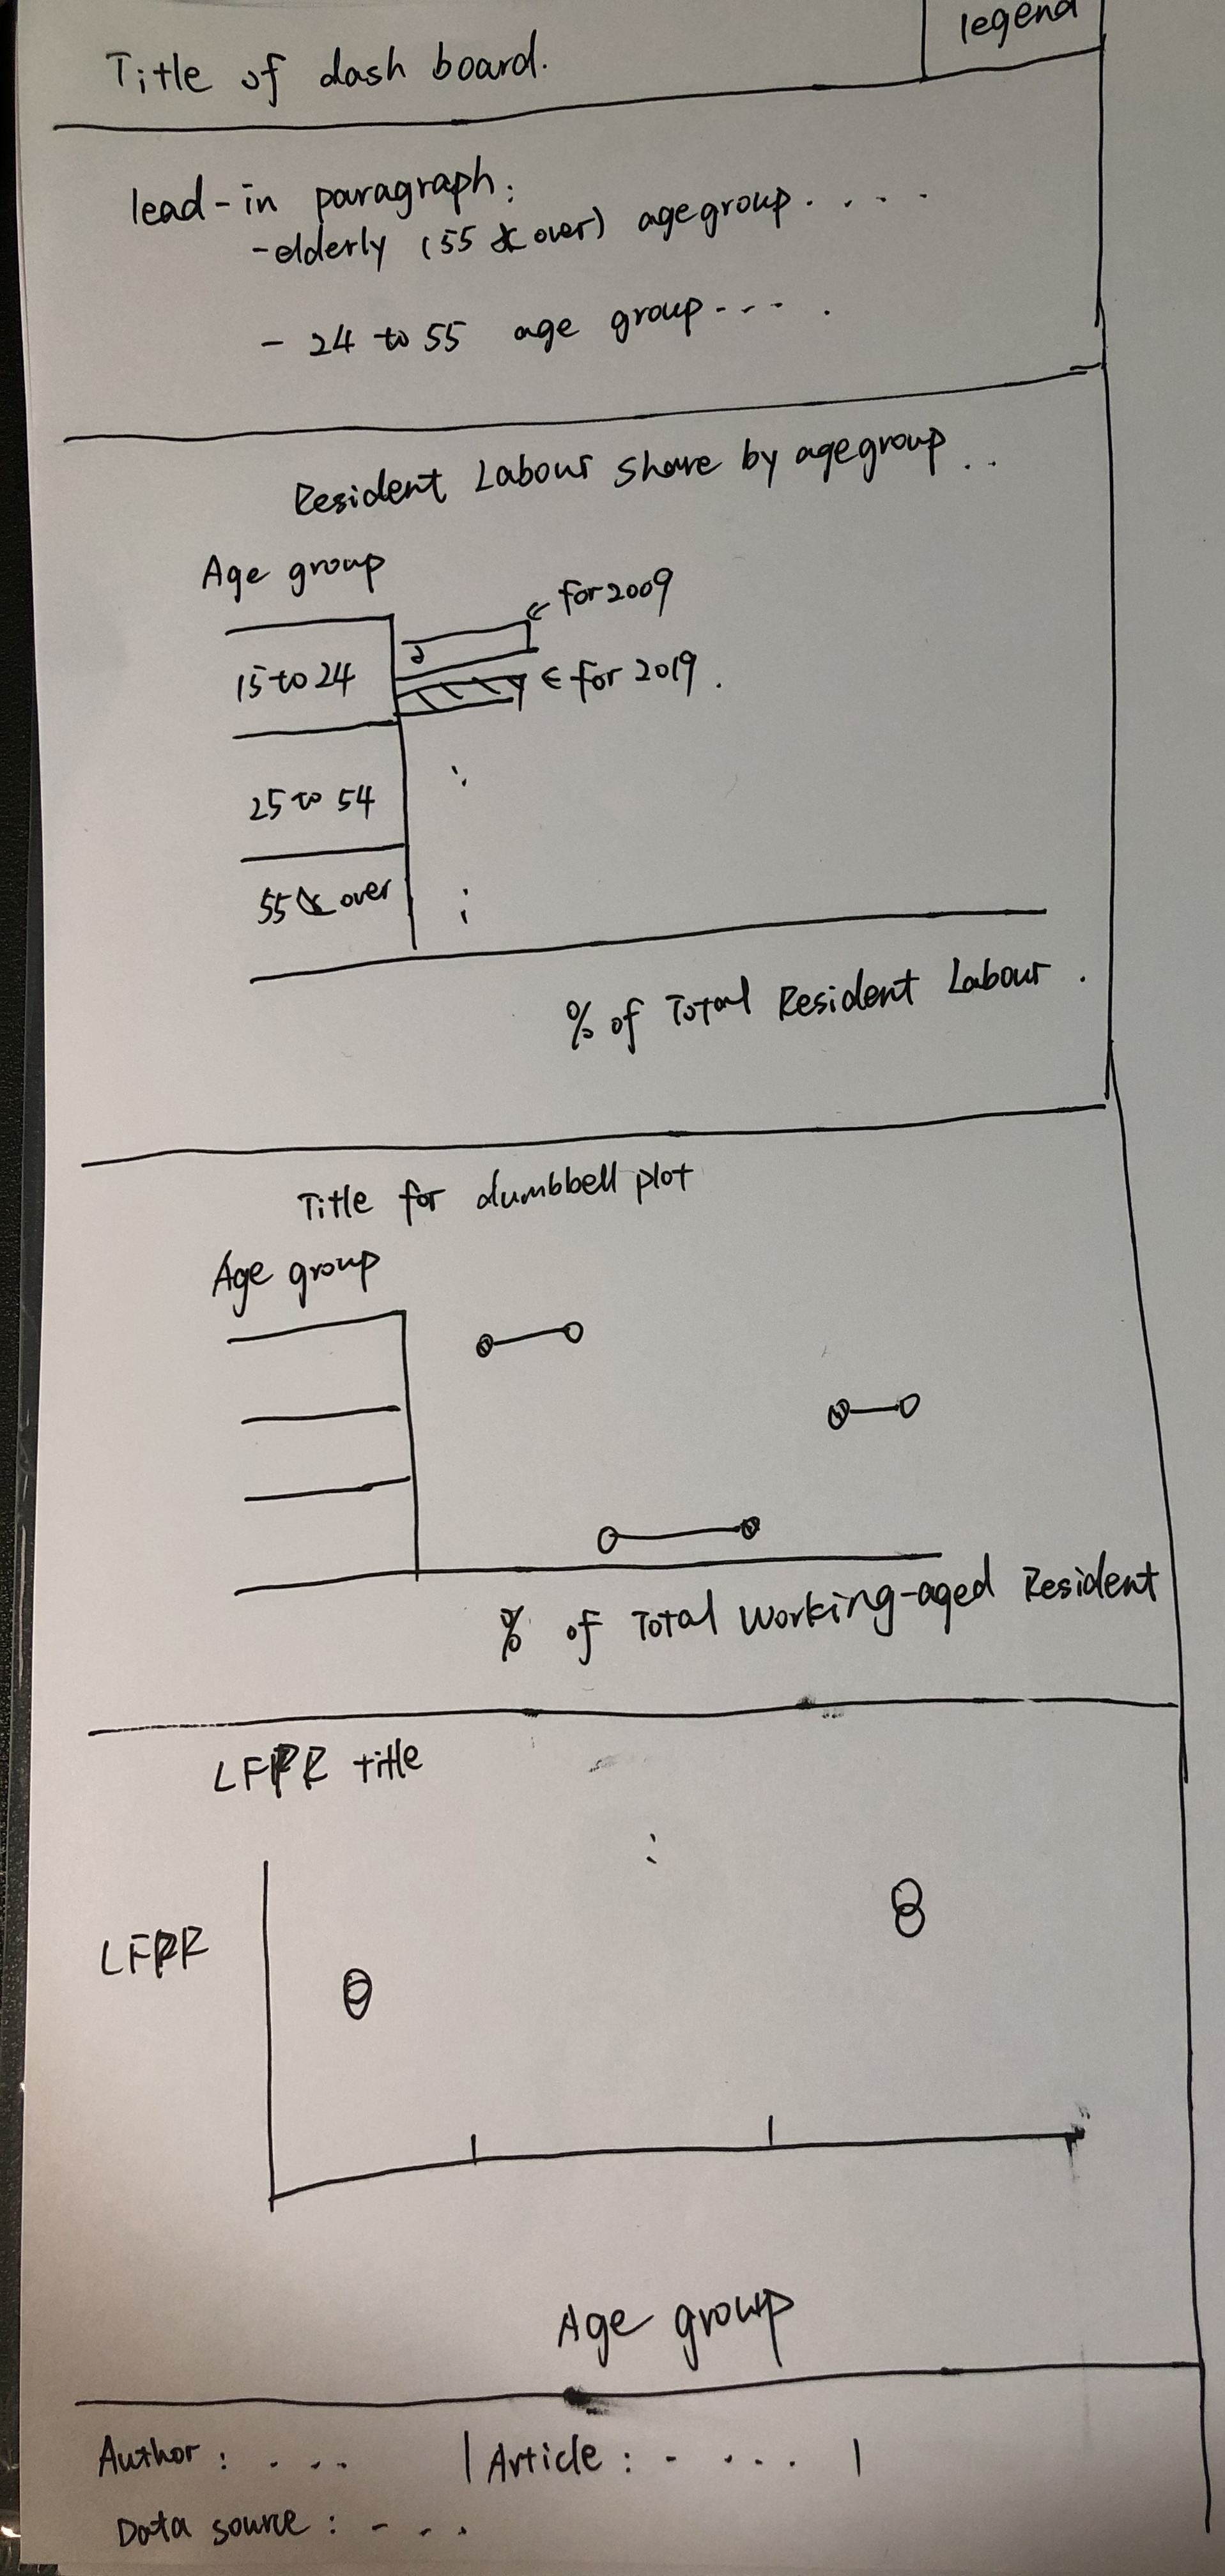 legend
Title of dash board.
lead-in paragraph:
-elderly (55 & over) agegroup . . . .
- 24 to 55 age group - - - .
Resident Labour Share by agegroup . .
Age group
for 2009
15 to 24
for 2019 .
25 to 54
55 & over
% of Total Resident Labour .
Title for dumbbell plot
Age group
% of Total Working-aged Resident
LFPR title
LFPR
Age group
Author : . . . | Article : - . . . . |
Data source : - . .